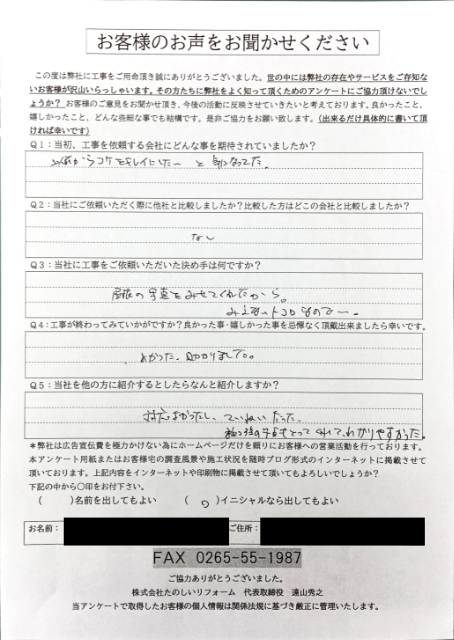 お客様のお声をお聞かせください
この度は弊社に工事をご用命頂き誠にありがとうございました。世の中には弊社の存在やサービスをご存知な
いお客様が沢山いらっしゃいます。その方たちに弊社をよく知って頂くためのアンケートにご協力頂けないでし
ょうか？ お客様のご意見をお聞かせ頂き、今後の活動に反映させていきたいと考えております。良かったこと、
嬉しかったこと、どんな些細な事でも結構です。是非ご協力をお願い致します。（出来るだけ具体的に書いて頂
ければ幸いです）
Q1：当初、工事を依頼する会社にどんな事を期待されていましたか？
以前からコケをキレイにしたーと気になってた。
Q2：当社にご依頼いただく際に他社と比較しましたか？比較した方はどこの会社と比較しましたか？
なし
Q3：当社に工事をご依頼いただいた決め手は何ですか？
屋根の写真をみせてくれたから。
みえないトコロなので―。
Q4：工事が終わってみていかがですか？良かった事・嬉しかった事を忌憚なく頂戴出来ましたら幸いです。
よかった。助かりました。
Q5：当社を他の方に紹介するとしたらなんと紹介しますか？
対応よかったし、ていねいだった。
施工後の写真をとってくれてわかりやすかった。
＊弊社は広告宣伝費を極力かけない為にホームページだけを頼りにお客様への営業活動を行っております。
本アンケート用紙またはお客様宅の調査風景や施工状況を随時ブログ形式のインターネットに掲載させて
頂いております。上記内容をインターネットや印刷物に掲載させて頂いてもよろしいでしょうか？
下記の中から〇印をお付下さい。
（　　）名前を出してもよい　　（ ○ ）イニシャルなら出してもよい
お名前：　ご住所：
FAX 0265-55-1987
ご協力ありがとうございました。
株式会社たのしいリフォーム　代表取締役　遠山秀之
当アンケートで取得したお客様の個人情報は関係法規に基づき厳正に管理いたします。